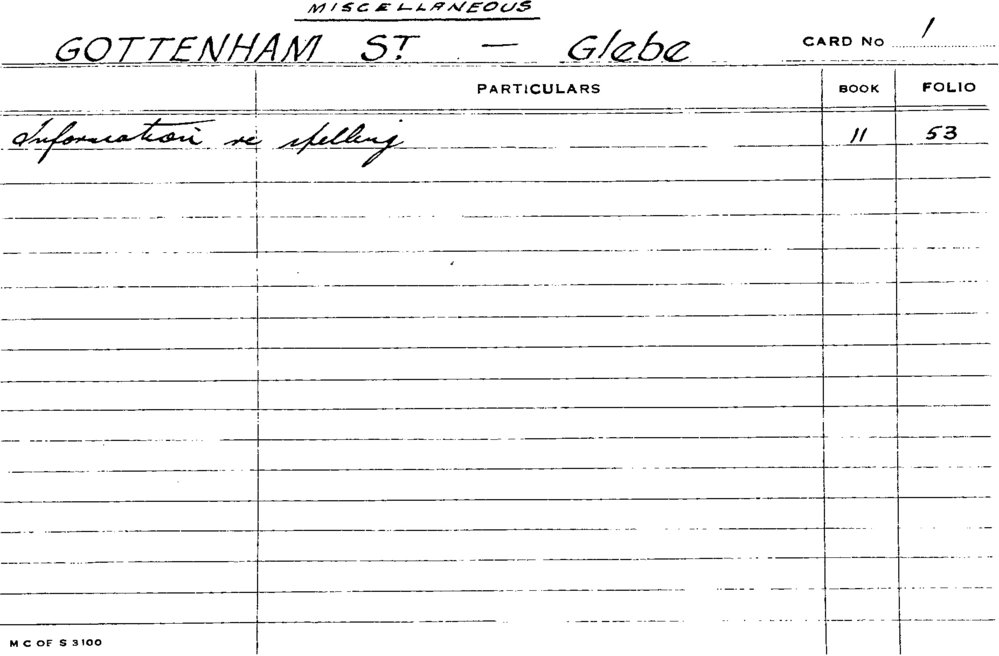 MISCELLANEOUS
GOTTENHAM ST — Glebe CARD No 1
PARTICULARS BOOK FOLIO
Information re spelling 11 53
M C OF S 3100